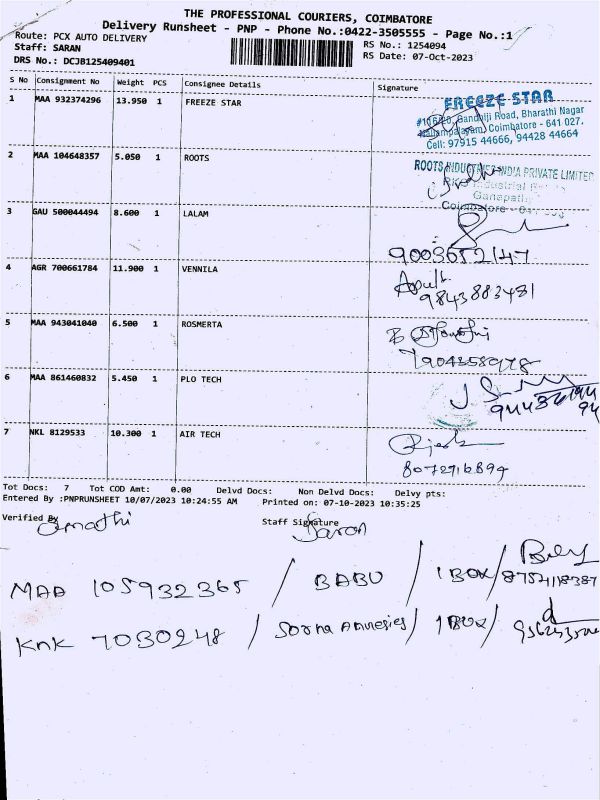 THE PROFESSIONAL COURIERS, COIMBATORE
Delivery Runsheet - PNP - Phone No.:0422-3505555 - Page No.:1
Route: PCX AUTO DELIVERY
RS No.: 1254094
Staff: SARAN
RS Date: 07-Oct-2023
DRS No.: DCJB125409401
S No Consignment No Weight PCS Consignee Details Signature
1 MAA 932374296 13.950 1 FREEZE STAR
FREEZE STAR
Gandhiji Road, Bharathi Nagar
Coimbatore - 641 027.
Cell: 97915 44666, 94428 44664
2 MAA 104648357 5.050 1 ROOTS
ROOTS INDUSTRIES INDIA PRIVATE LIMITED
Industrial
Ganapathy
Coimbatore
3 GAU 500044494 8.600 1 LALAM
9003652147
4 AGR 700661784 11.900 1 VENNILA
9843883481
5 MAA 943041040 6.500 1 ROSMERTA
6 MAA 861460832 5.450 1 PLO TECH
7 NKL 8129533 10.300 1 AIR TECH
Tot Docs: 7 Tot COD Amt: 0.00 Delvd Docs: Non Delvd Docs: Delvy pts:
Entered By :PNPRUNSHEET 10/07/2023 10:24:55 AM Printed on: 07-10-2023 10:35:25
Verified By Staff Signature
Saran
MAA 105932365 / BABU / 1 BOX /
KNK 7030248 / Sorna / 1 BOX /